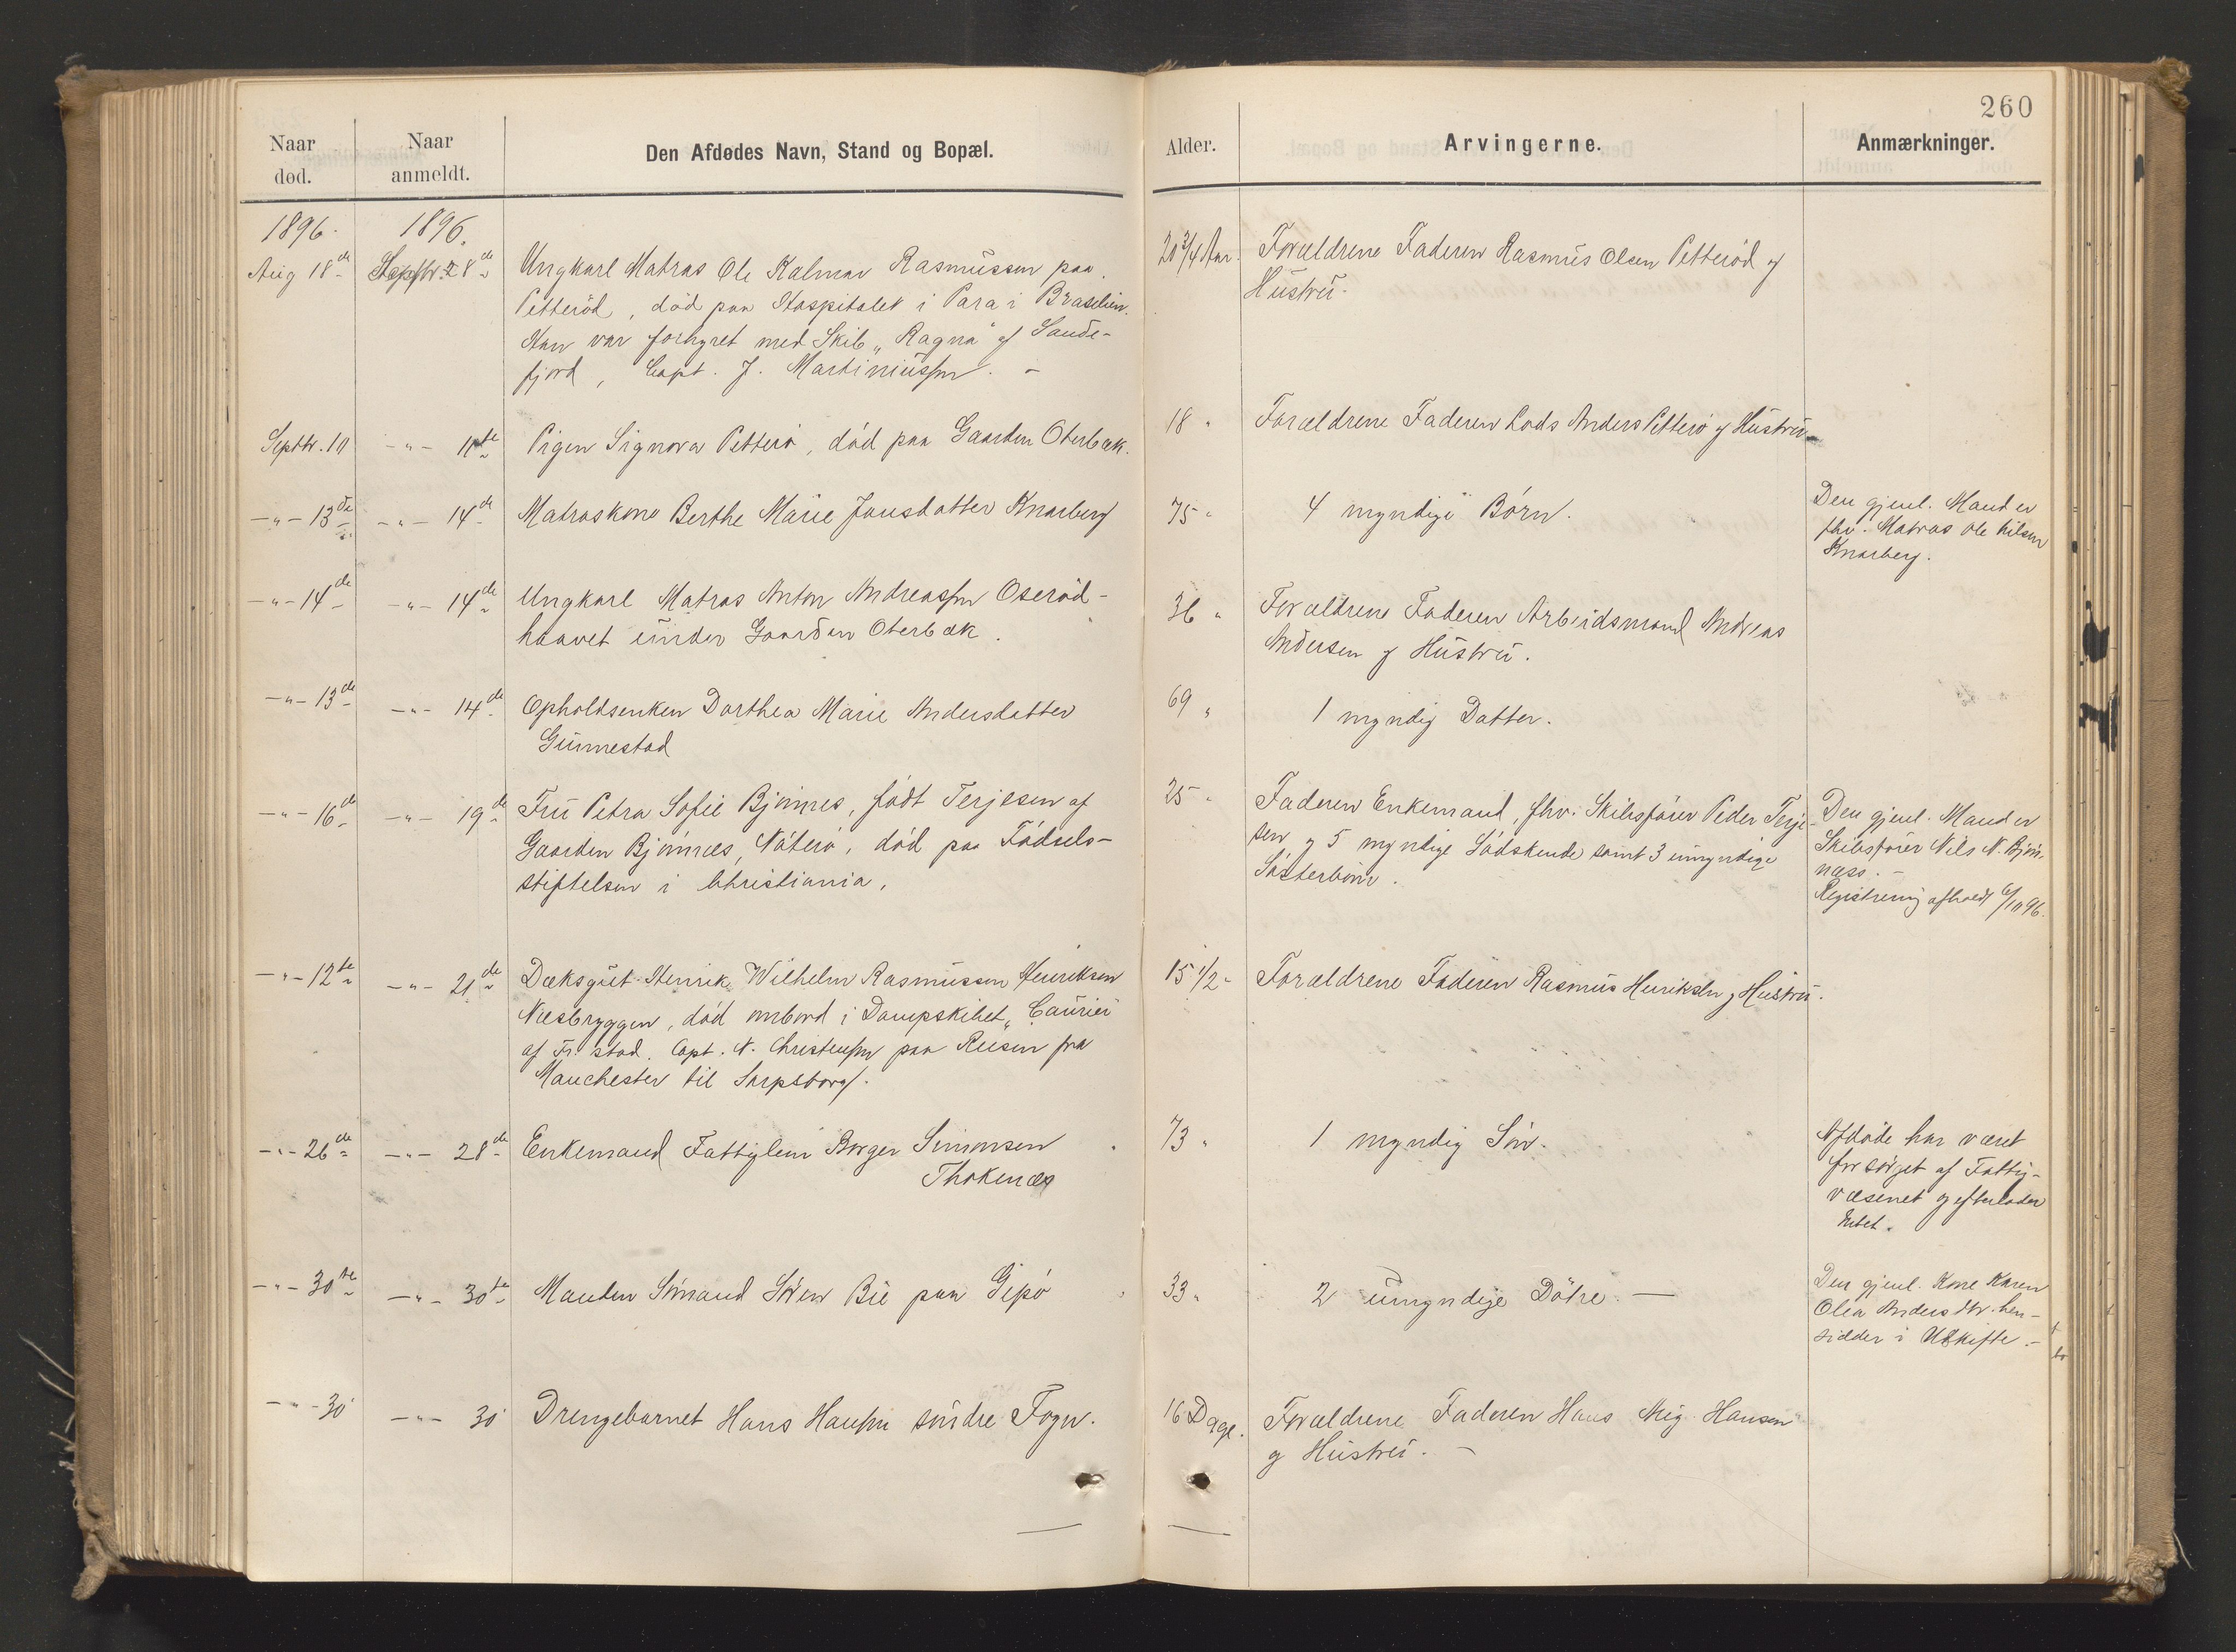 260
Naar død.
Naar anmeldt.
Den Afdødes Navn, Stand og Bopæl.
Alder.
Arvingerne.
Anmærkninger.
1896. 1896.
Aug 18de Septbr. 8de Ungkarl Matros Ole Kalmar Rasmussen paa
Petterød, død paa Hospitalet i Para i Brasilien.
Han var forhyret med Skib „Ragna" af Sande-
fjord, Capt. J. Martiniussen. -
20 3/4 Aar. Forældrene Faderen Rasmus Olsen Petterød og
Hustru.
Septbr. 10 -"- 11te Pigen Signora Petterø, død paa Gaarden Oterbæk.
18 " Forældrene Faderen Lods Anders Petterø og Hustru
-"- 13de -"- 14de Matroskone Berthe Marie Jonsdatter Knarberg
75 " 4 myndige Børn.
Den gjenl. Mand er
fhv. Matros Ole Nilsen
Knarberg.
-"- 14de -"- 14de Ungkarl Matros Anton Andreassen Oserød-
haavet under Gaarden Oterbæk.
36 " Forældrene Faderen Arbeidsmand Andreas
Andersen og Hustru.
-"- 13de -"- 14de Opholdsenken Dorthea Marie Andersdatter
Gunnestad
69 " 1 myndig Datter.
-"- 16de -"- 19de Fru Petra Sofie Bjønnes, født Terjesen af
Gaarden Bjønnæs, Nøterø, død paa Fødsels-
stiftelsen i Christiania.
25 " Faderen Enkemand, fhv. Skibsfører Peder Terje-
sen og 5 myndige Sødskende samt 3 umyndige
Søsterbørn.
Den gjenl. Mand er
Skibsfører Nils N. Bjøn-
næss. -
Registrering afholdt 6/10 96.
-"- 12te -"- 21de Dæksgut Henrik Wilhelm Rasmussen Henriksen
Næsbryggen, død ombord i Dampskibet „Caurier"
af Fr. stad. Capt. N. Christensen paa Reisen fra
Manchester til Sarpsborg.
15 1/2 " Forældrene Faderen Rasmus Henriksen og Hustru.
-"- 26de -"- 28de Enkemand Fattiglem Borger Simonsen
Thokenæs
73 " 1 myndig Søn.
Afdøde har været
forsørget af Fattig-
væsenet og efterlader
Intet.
-"- 30te -"- 30te Manden Sømand Søren Bie paa Gipø
33 " 2 umyndige Døtre. —
Den gjenl. Kone Karen
Olea Andersdtr. hen-
sidder i Uskifte. -
-"- 30 -"- 30 Drengebarnet Hans Hansen søndre Fogn.
16 Dage. Forældrene Faderen Hans Mig. Hansen
og Hustru. -